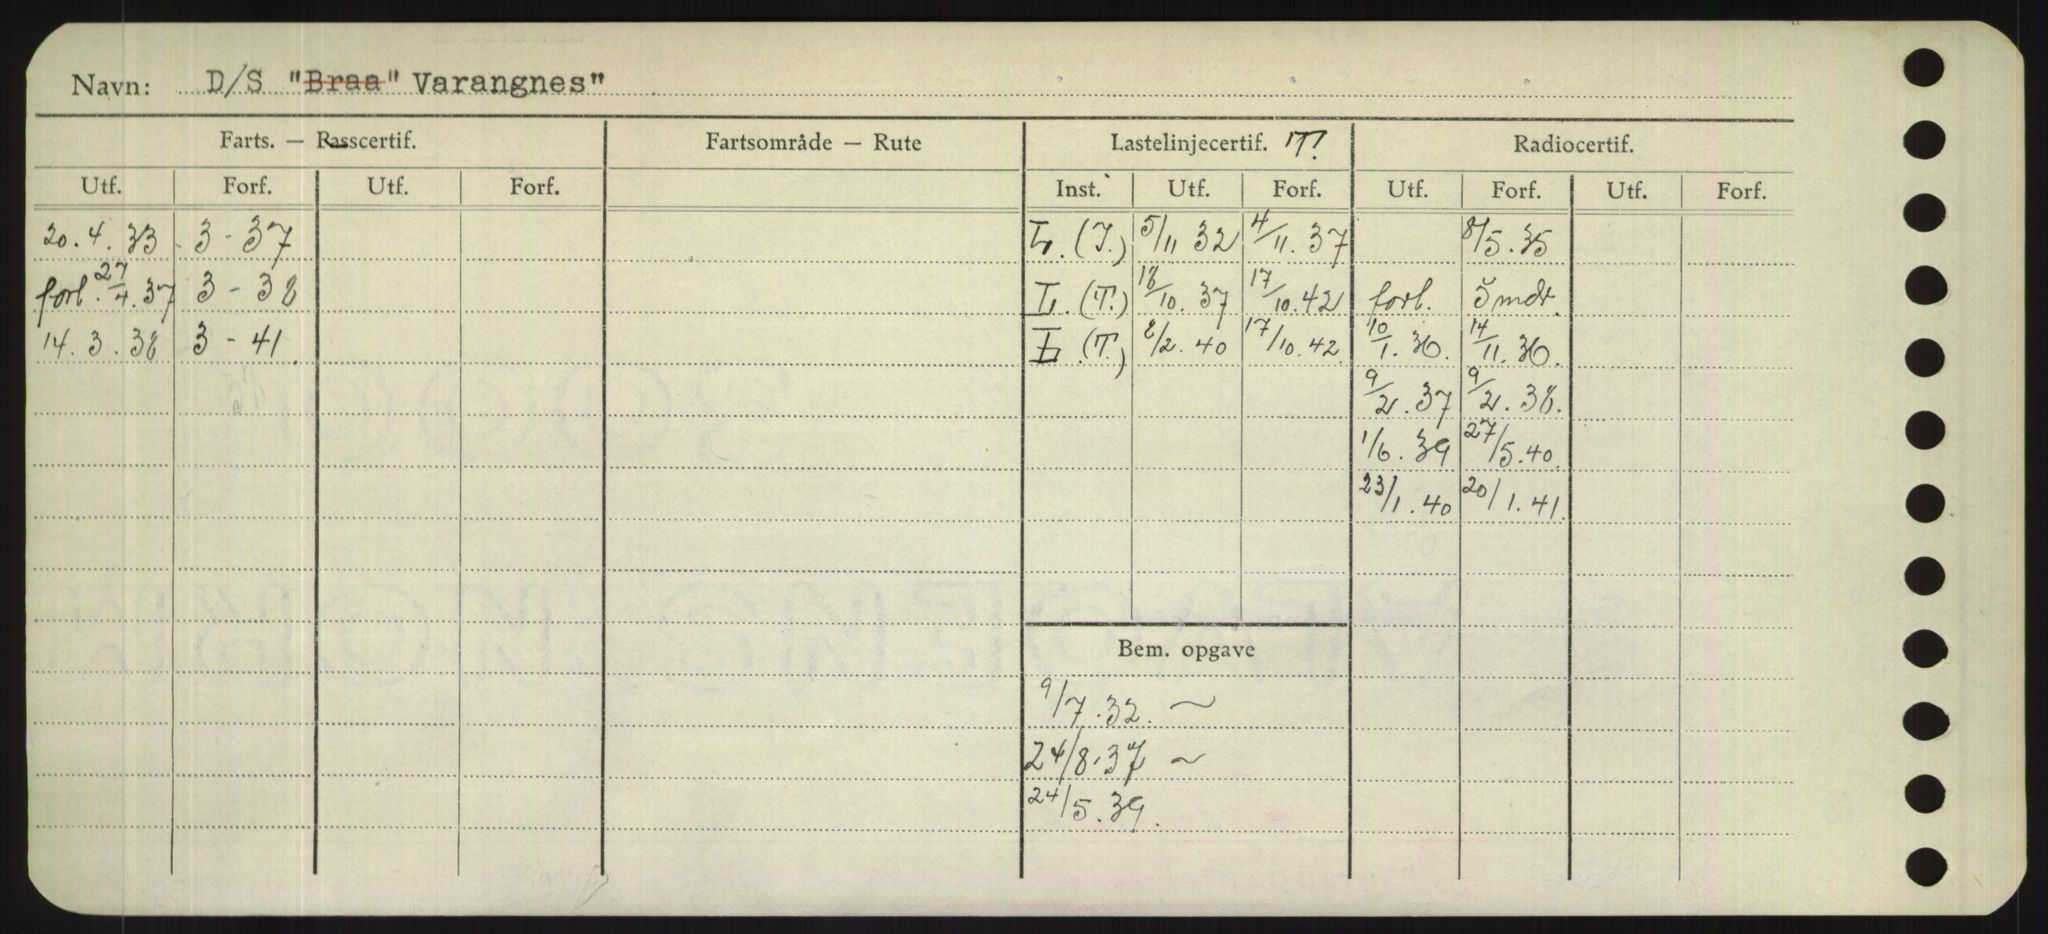 Navn: D/S "Braa" Varangnes"
Farts. — Passcertif. Fartsområde — Rute Lastelinjecertif. T! Radiocertif.
Utf. Forf. Utf. Forf. Inst. Utf. Forf. Utf. Forf. Utf. Forf.
20.4.33 3-37 L. (T.) 5/11 32 4/11.37 8/5.35
forl. 27/4.37 3-38 L. (T.) 18/10.37 17/10.42 forl. 5 mdr.
14.3.38 3-41. L (T.) 2/2.40 17/10.42 10/1.36. 14/11.36.
9/2.37 9/2.38.
1/6.39 27/5.40.
23/1.40 20/1.41.
Bem. opgave
9/7.32. ~
24/8.37 ~
24/5.39.